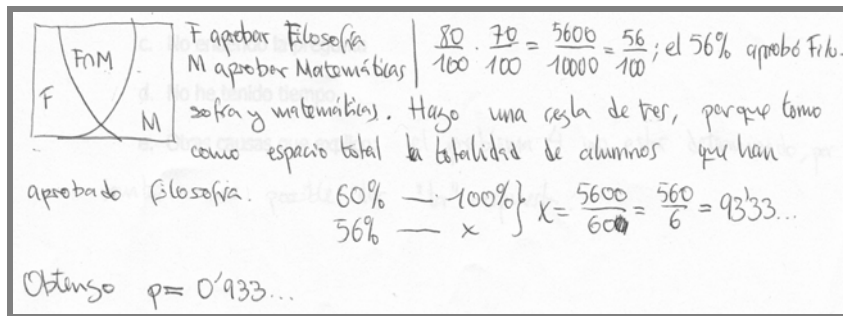 F∩M
F
M
F aprobar Filosofía
M aprobar Matemáticas
80/100 · 70/100 = 5600/10000 = 56/100 ; el 56% aprobó Filo-
sofía y matemáticas. Hago una regla de tres, porque tomo
como espacio total la totalidad de alumnos que han
aprobado filosofía.
60% — 100%
56% — x
} x = 5600/60 = 560/6 = 93'33...
Obtengo p = 0'933...